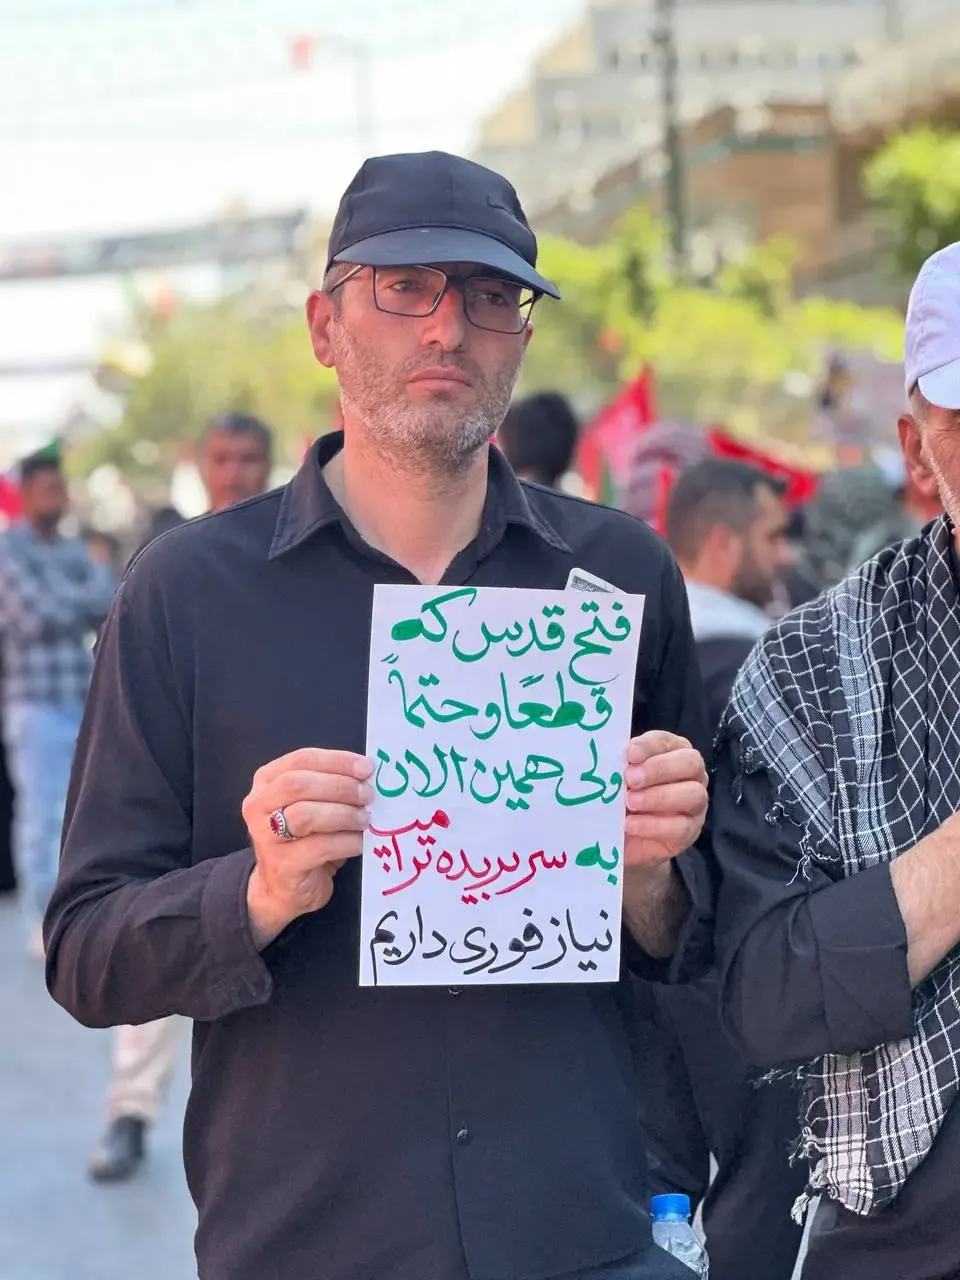 فتح قدس که
قطعاً و حتماً
ولی همین الان
به سر بریده ترامپ
نیاز فوری داریم